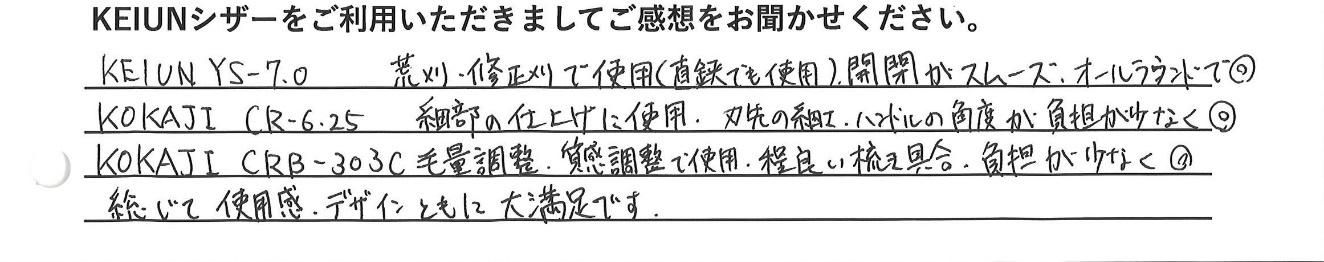 KEIUNシザーをご利用いただきましてご感想をお聞かせください。
KEIUN YS-7.0 荒刈・修正刈で使用(直鋏でも使用)、開閉がスムーズ、オールラウンドで◎
KOKAJI CR-6.25 細部の仕上げに使用、刃先の細工、ハンドルの角度が負担が少なく◎
KOKAJI CRB-303C 毛量調整、質感調整で使用、程良い梳き具合、負担が少なく◎
総じて使用感、デザインともに大満足です。